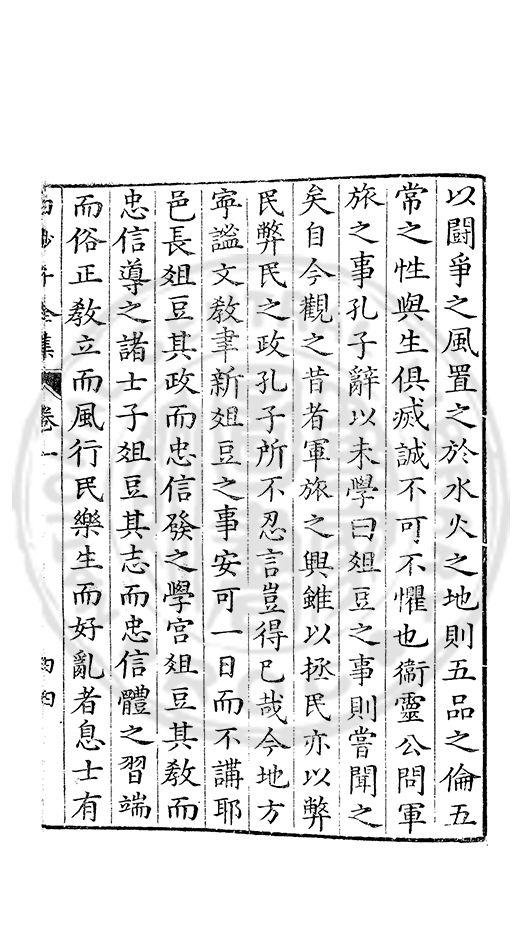 以鬪爭之風置之於水火之地則五品之倫五
常之性與生俱滅誠不可不懼也衞靈公問軍
旅之事孔子辭以未學曰爼豆之事則嘗聞之
矣自今觀之昔者軍旅之興雖以拯民亦以弊
民弊民之政孔子所不忍言豈得已哉今地方
寜謐文敎聿新爼豆之事安可一日而不講耶
邑長爼豆其政而忠信發之學宮爼豆其敎而
忠信導之諸士子爼豆其志而忠信體之習端
而俗正敎立而風行民樂生而好亂者息士有
子全集 卷一